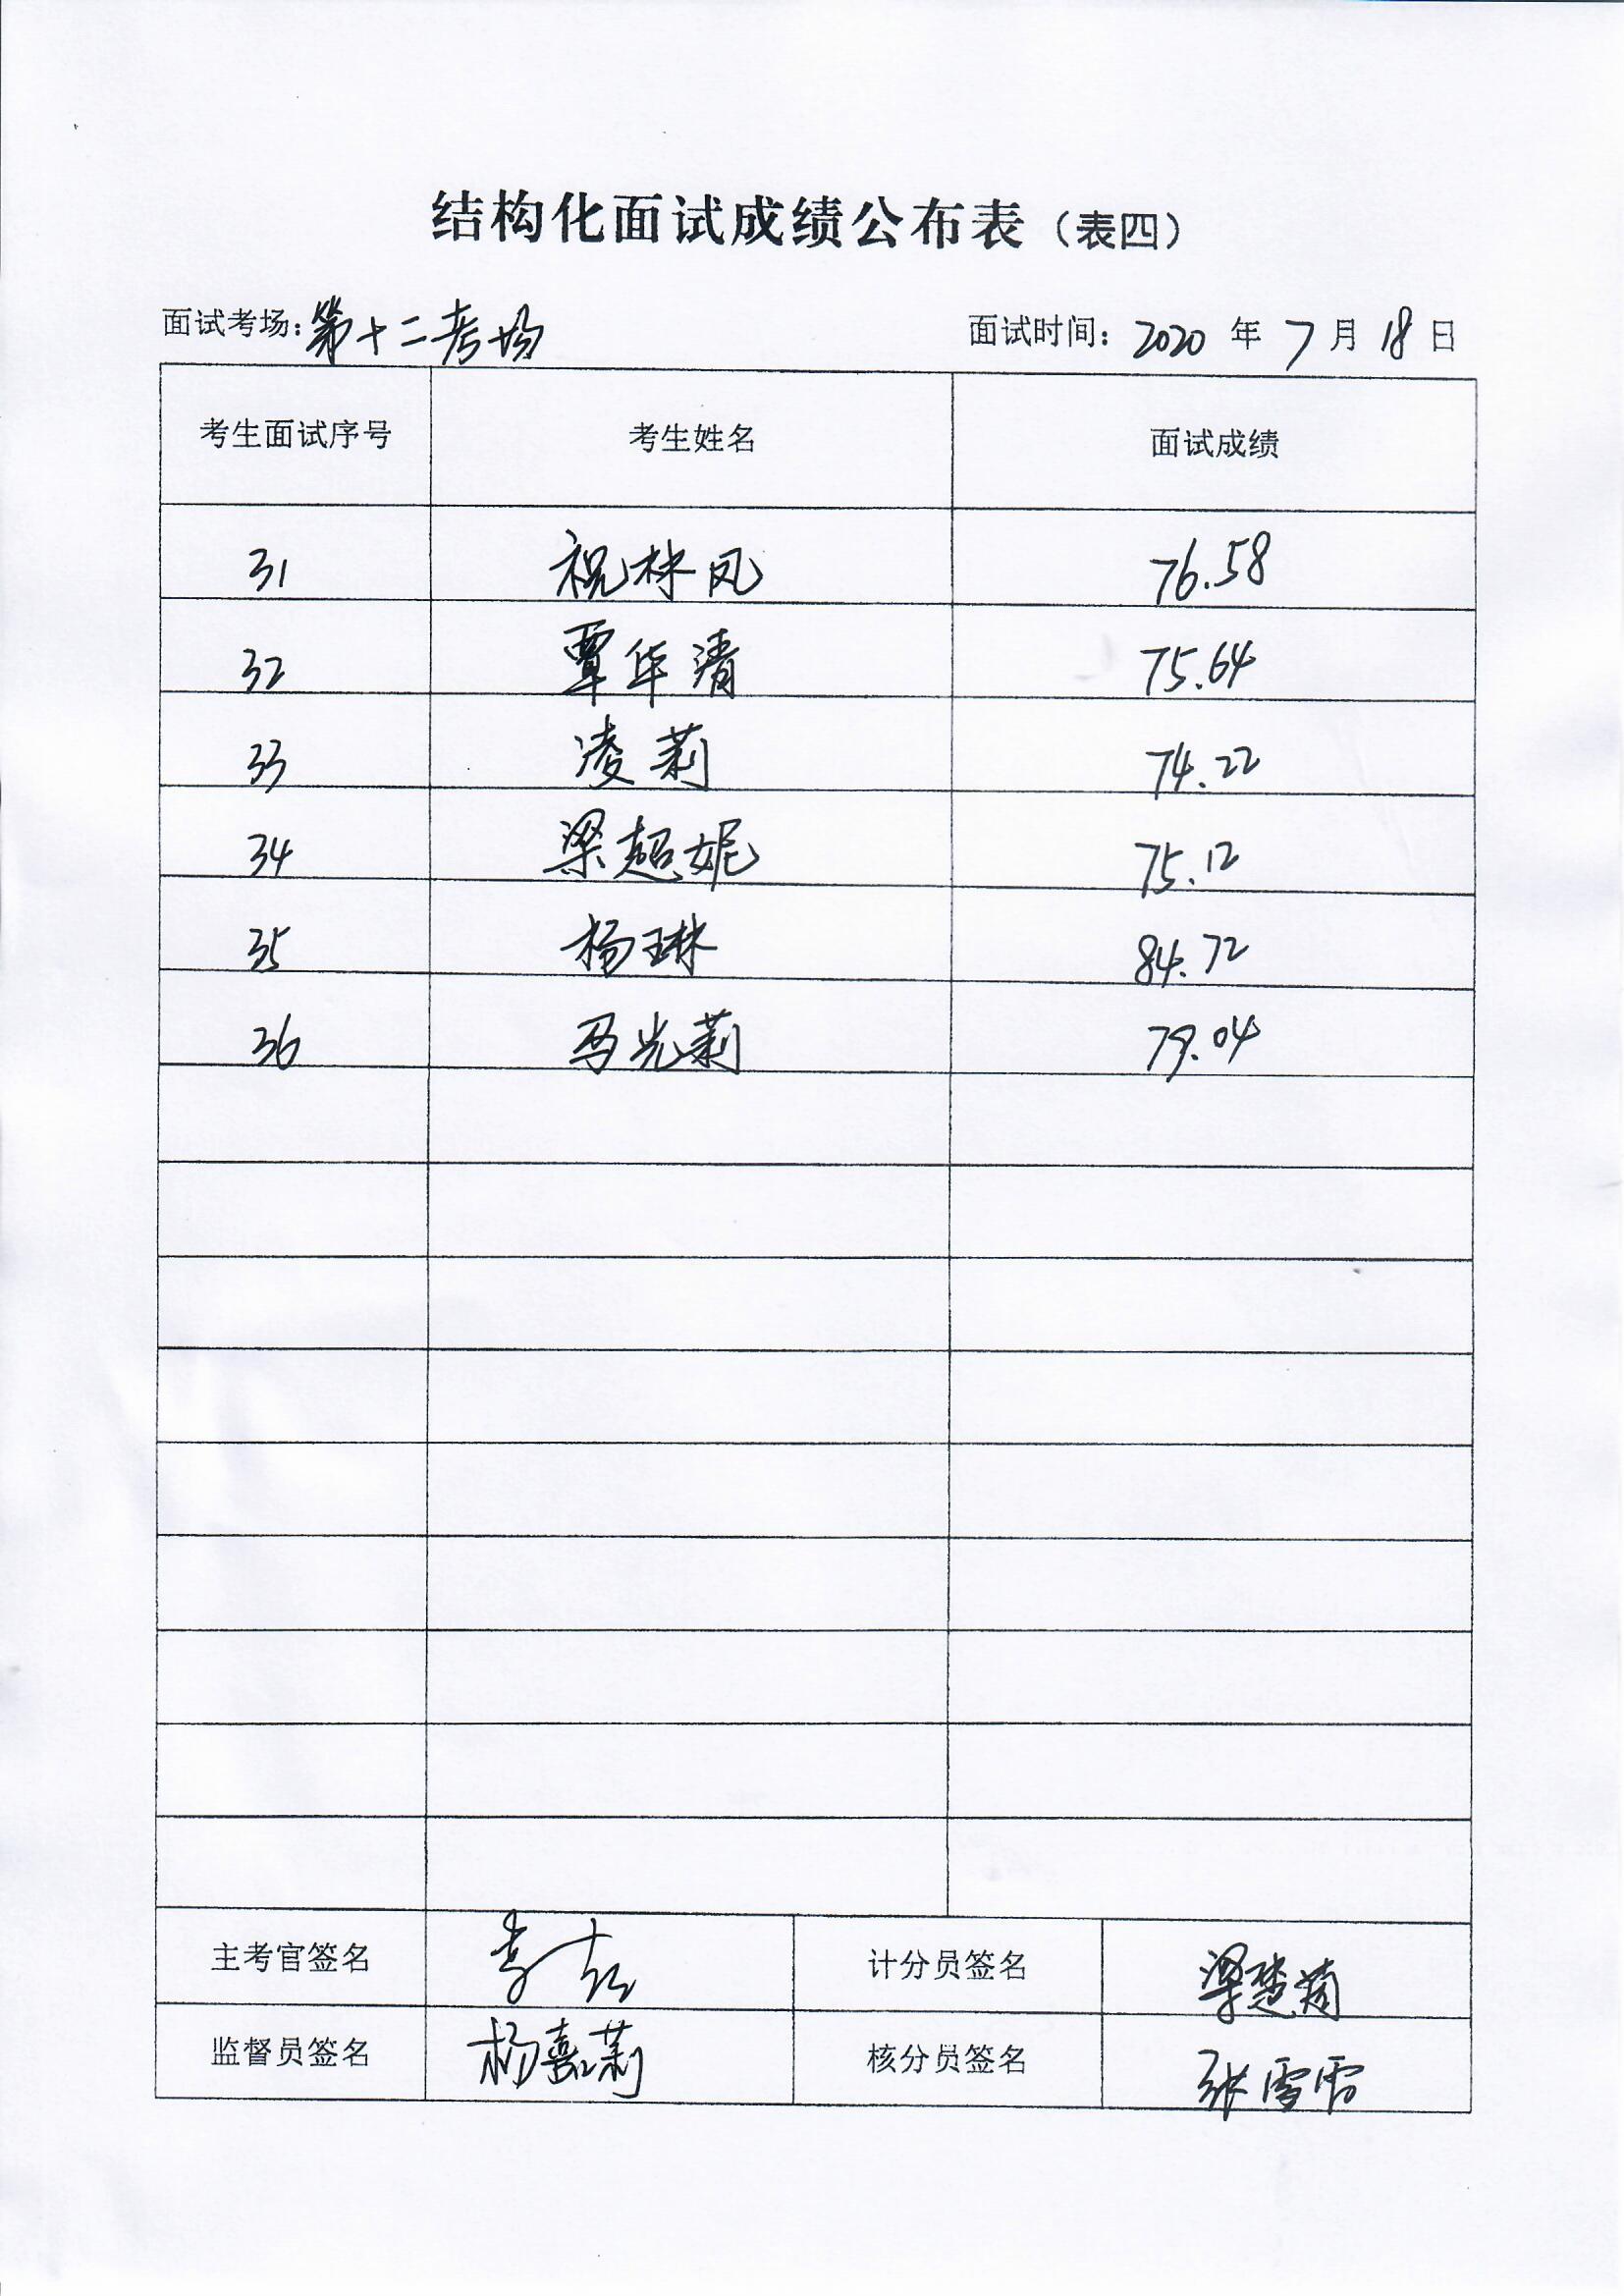 结构化面试成绩公布表（表四）
面试考场：第十二考场 面试时间：2020 年 7 月 18 日
考生面试序号 考生姓名 面试成绩
31 祝林凤 76.58
32 覃华清 75.64
33 凌莉 74.22
34 梁超妮 75.12
35 杨琳 84.72
36 马光莉 79.04
主考官签名 李 计分员签名 梁楚
监督员签名 杨嘉莉 核分员签名 张雪